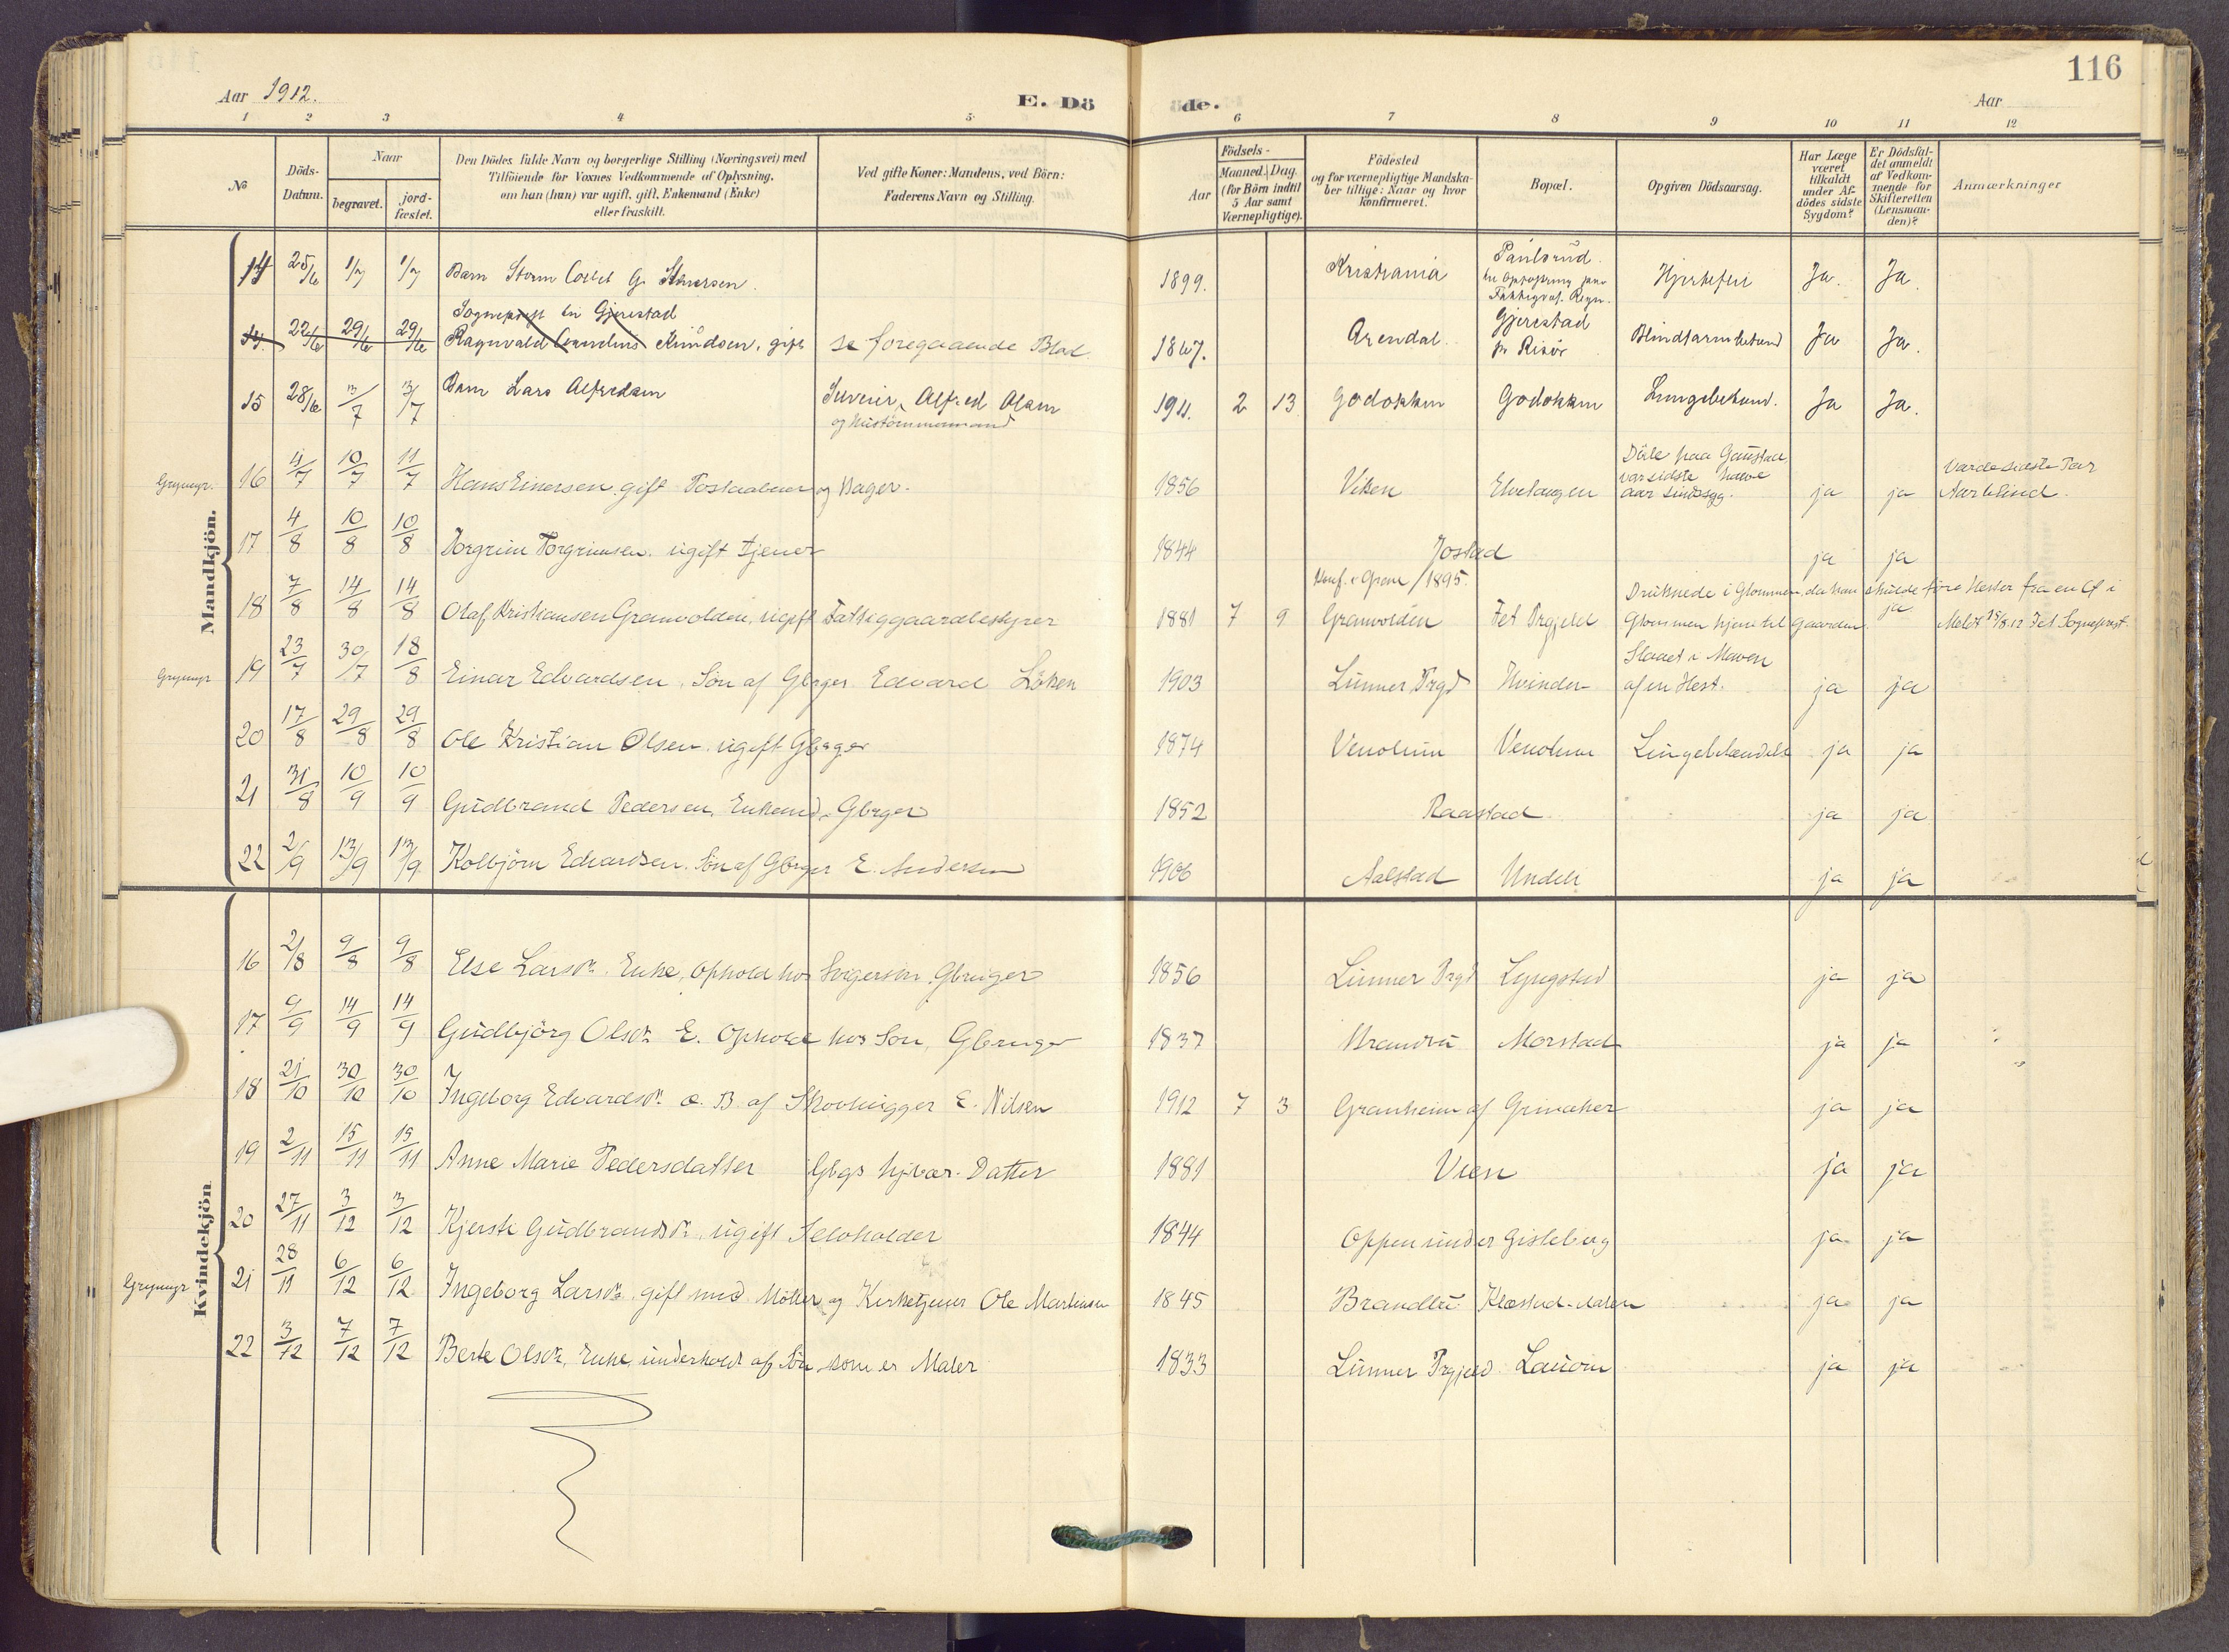 116
Aar 1912.
E. Dö
de.
Aar
1 2 3 4 5 6 7 8 9 10 11 12
No
Döds-
Datum.
Naar
begravet.
jord-
fæstet.
Den Dödes fulde Navn og borgerlige Stilling (Næringsvei) med
Tilföiende for Voxnes Vedkommende af Oplysning,
om han (hun) var ugift, gift, Enkemand (Enke)
eller fraskilt.
Ved gifte Koner: Mandens, ved Börn:
Faderens Navn og Stilling.
Födsels-
Aar
Maaned.
Dag.
(for Börn indtil
5 Aar samt
Værnepligtige).
Födested
og for værnepligtige Mandska-
ber tillige: Naar og hvor
konfirmeret.
Bopæl.
Opgiven Dödsaarsag.
Har Læge
været
tilkaldt
under Af-
dödes sidste
Sygdom?
Er Dödsfal-
det anmeldt
af Vedkom-
mende for
Skifteretten
(Lensman-
den)?
Anmærkninger
Mandkjön.
14 25/6 1/7 1/7 Barn Storm 1899. Kristiania Paulsrud Hjertefeil Ja. Ja.
Sogneprest til Gjerestad
14. 22/6 29/6 29/6 Ragnvald Cornelius Knudsen, gift se foregaaende Blad. 1867. Arendal. Gjerestad pr Risör Ja Ja.
15 28/6 3/7 3/7 Barn Lars Alfredsen Alfred Olsen 1911. 2 13 Godokken Godokken Ja Ja.
og Hustömmermand
Grymyr. 16 4/7 10/7 11/7 Hans Einersen gift Postaabner og Bager. 1856 Viken Döde paa Gaustad, ja ja
var sidste halve
aar sindssyg.
17 4/8 10/8 10/8 Torgrim Torgrimsen. ugift tjener 1844 Jostad ja ja
Konf. i Gran /1895.
18 7/8 14/8 14/8 Olaf Kristiansen Granvolden, ugift Fattiggaardbestyrer 1881 7 9 Granvolden Fet Prgjeld ja
Druknede i Glommen, da han skulde före Hester fra en Ö i
Glommen hjem til Gaarden. Meldt 15/8.12 Fet Sogneprest.
Grymyr 19 23/7 30/7 18/8 Einar Edvardsen, Sön af Gbrger Edvard Löken 1903 Lunner Prgd Hvinden Slaaet i Maven ja ja
af en Hest.
20 17/8 29/8 29/8 Ole Kristian Olsen ugift Gbrger 1874 Venolum Venolum Lungebetændelse ja ja
21 31/8 10/9 10/9 Gudbrand Pedersen, Enkemd, Gbrger 1852 Raastad ja ja
22 2/9 13/9 13/9 Kolbjörn Edvardsen. Sön af Gbrger E. Andersen 1906 Aalstad Undeli ja ja
Kvindekjön
16 2/8 9/8 9/8 Else Larsdr. Enke, Ophold hos Svigersön Gbruger 1856 Lunner Prgd Lyngstad ja ja
17 9/9 14/9 14/9 Gudbjörg Olsdr. E. Ophold hos Sön, Gbruger 1837 Brandbu Morstad ja ja
18 21/10 30/10 30/10 Ingeborg Edvardsdr. æ. B. af Skovhugger E. Nilsen 1912 7 3 Granheim af Grinaker ja ja
19 2/11 15/11 15/11 Anne Marie Pedersdatter Gbgs hjvær. Datter 1881 Vien ja ja
20 27/11 3/12 3/12 Kjersti Gudbrandsdr., ugift Selvholder 1844 Oppen under Gisleberg ja ja
Grymyr 21 28/11 6/12 6/12 Ingeborg Larsdr. gift med Möller og Kirketjener Ole Martinsen 1845 Brandbu Klæstad-dalen ja ja
22 3/12 7/12 7/12 Berte Olsdr, Enke, underholdt af Sön som er Maler 1833 Lunner Prgjeld ja ja